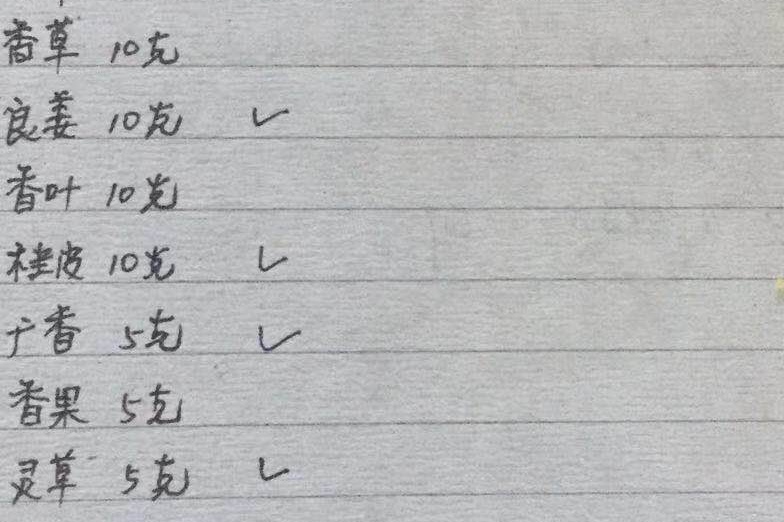 香草 10克
良姜 10克 ✓
香叶 10克
桂皮 10克 ✓
广香 5克 ✓
香果 5克
灵草 5克 ✓